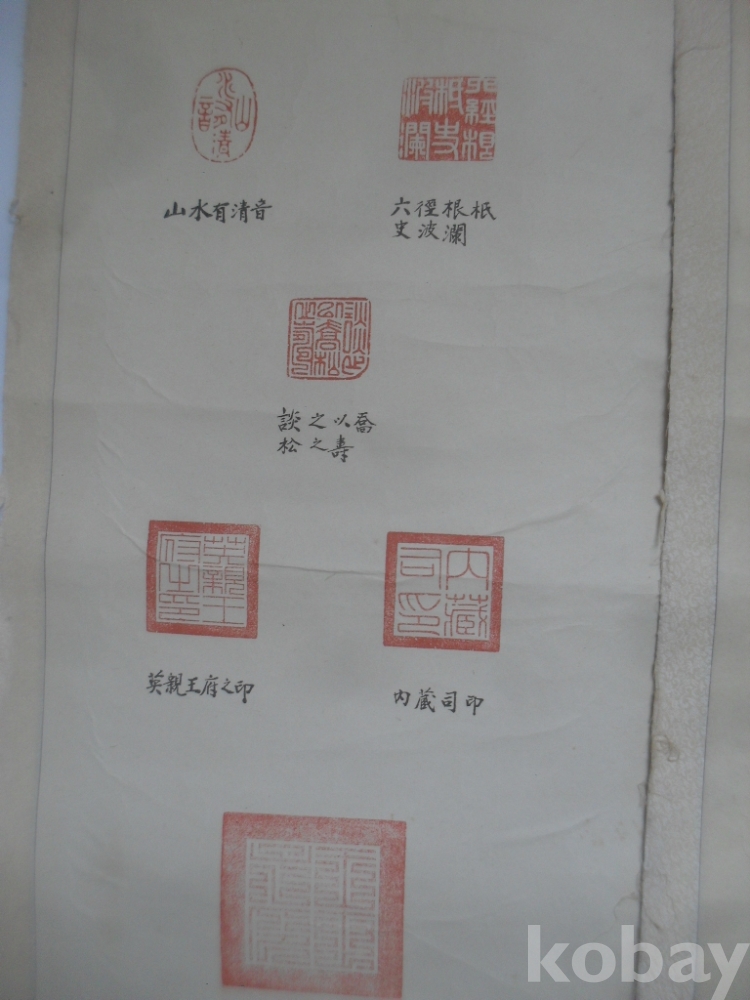 山水有清音
六徑根柢
史波瀾
談之以喬
松之壽
英親王府之印
內藏司印
kobay